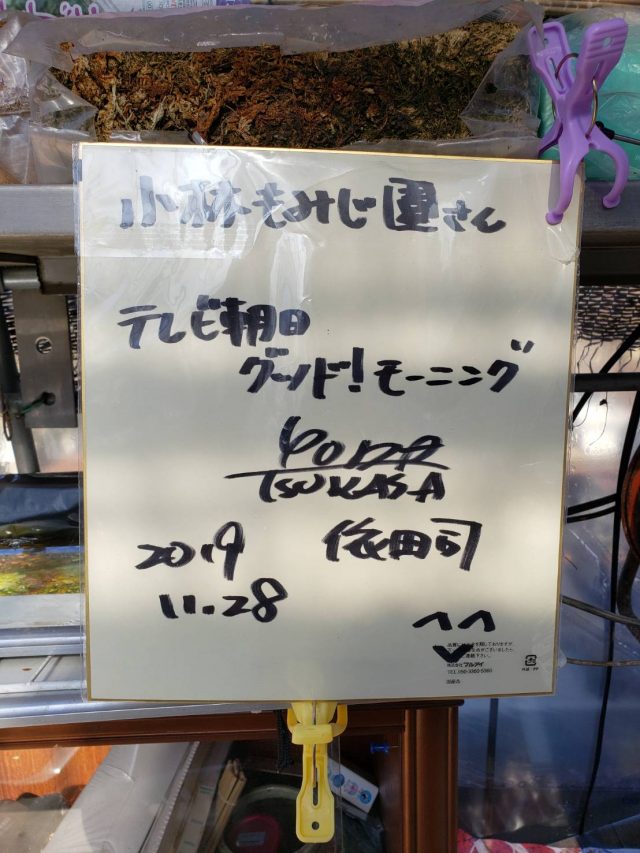 小林もみじ園さん
テレビ朝日
グッド!モーニング
YODA
TSUKASA
2019
11.28
依田司
^^
株式会社マルアイ